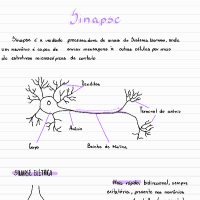 Sinapse
Sinapse é a unidade processadora de sinais do Sistema Nervoso, onde
um neurônio é capaz de enviar mensagens a outras células por meio
de estruturas microscópicas de contato
Dendritos
Terminal do axônio
Axônio
Corpo
Bainha de Mielina
SINAPSE ELÉTRICA
Mais rápida, bidirecional, sempre
excitatória, presente nos neurônios